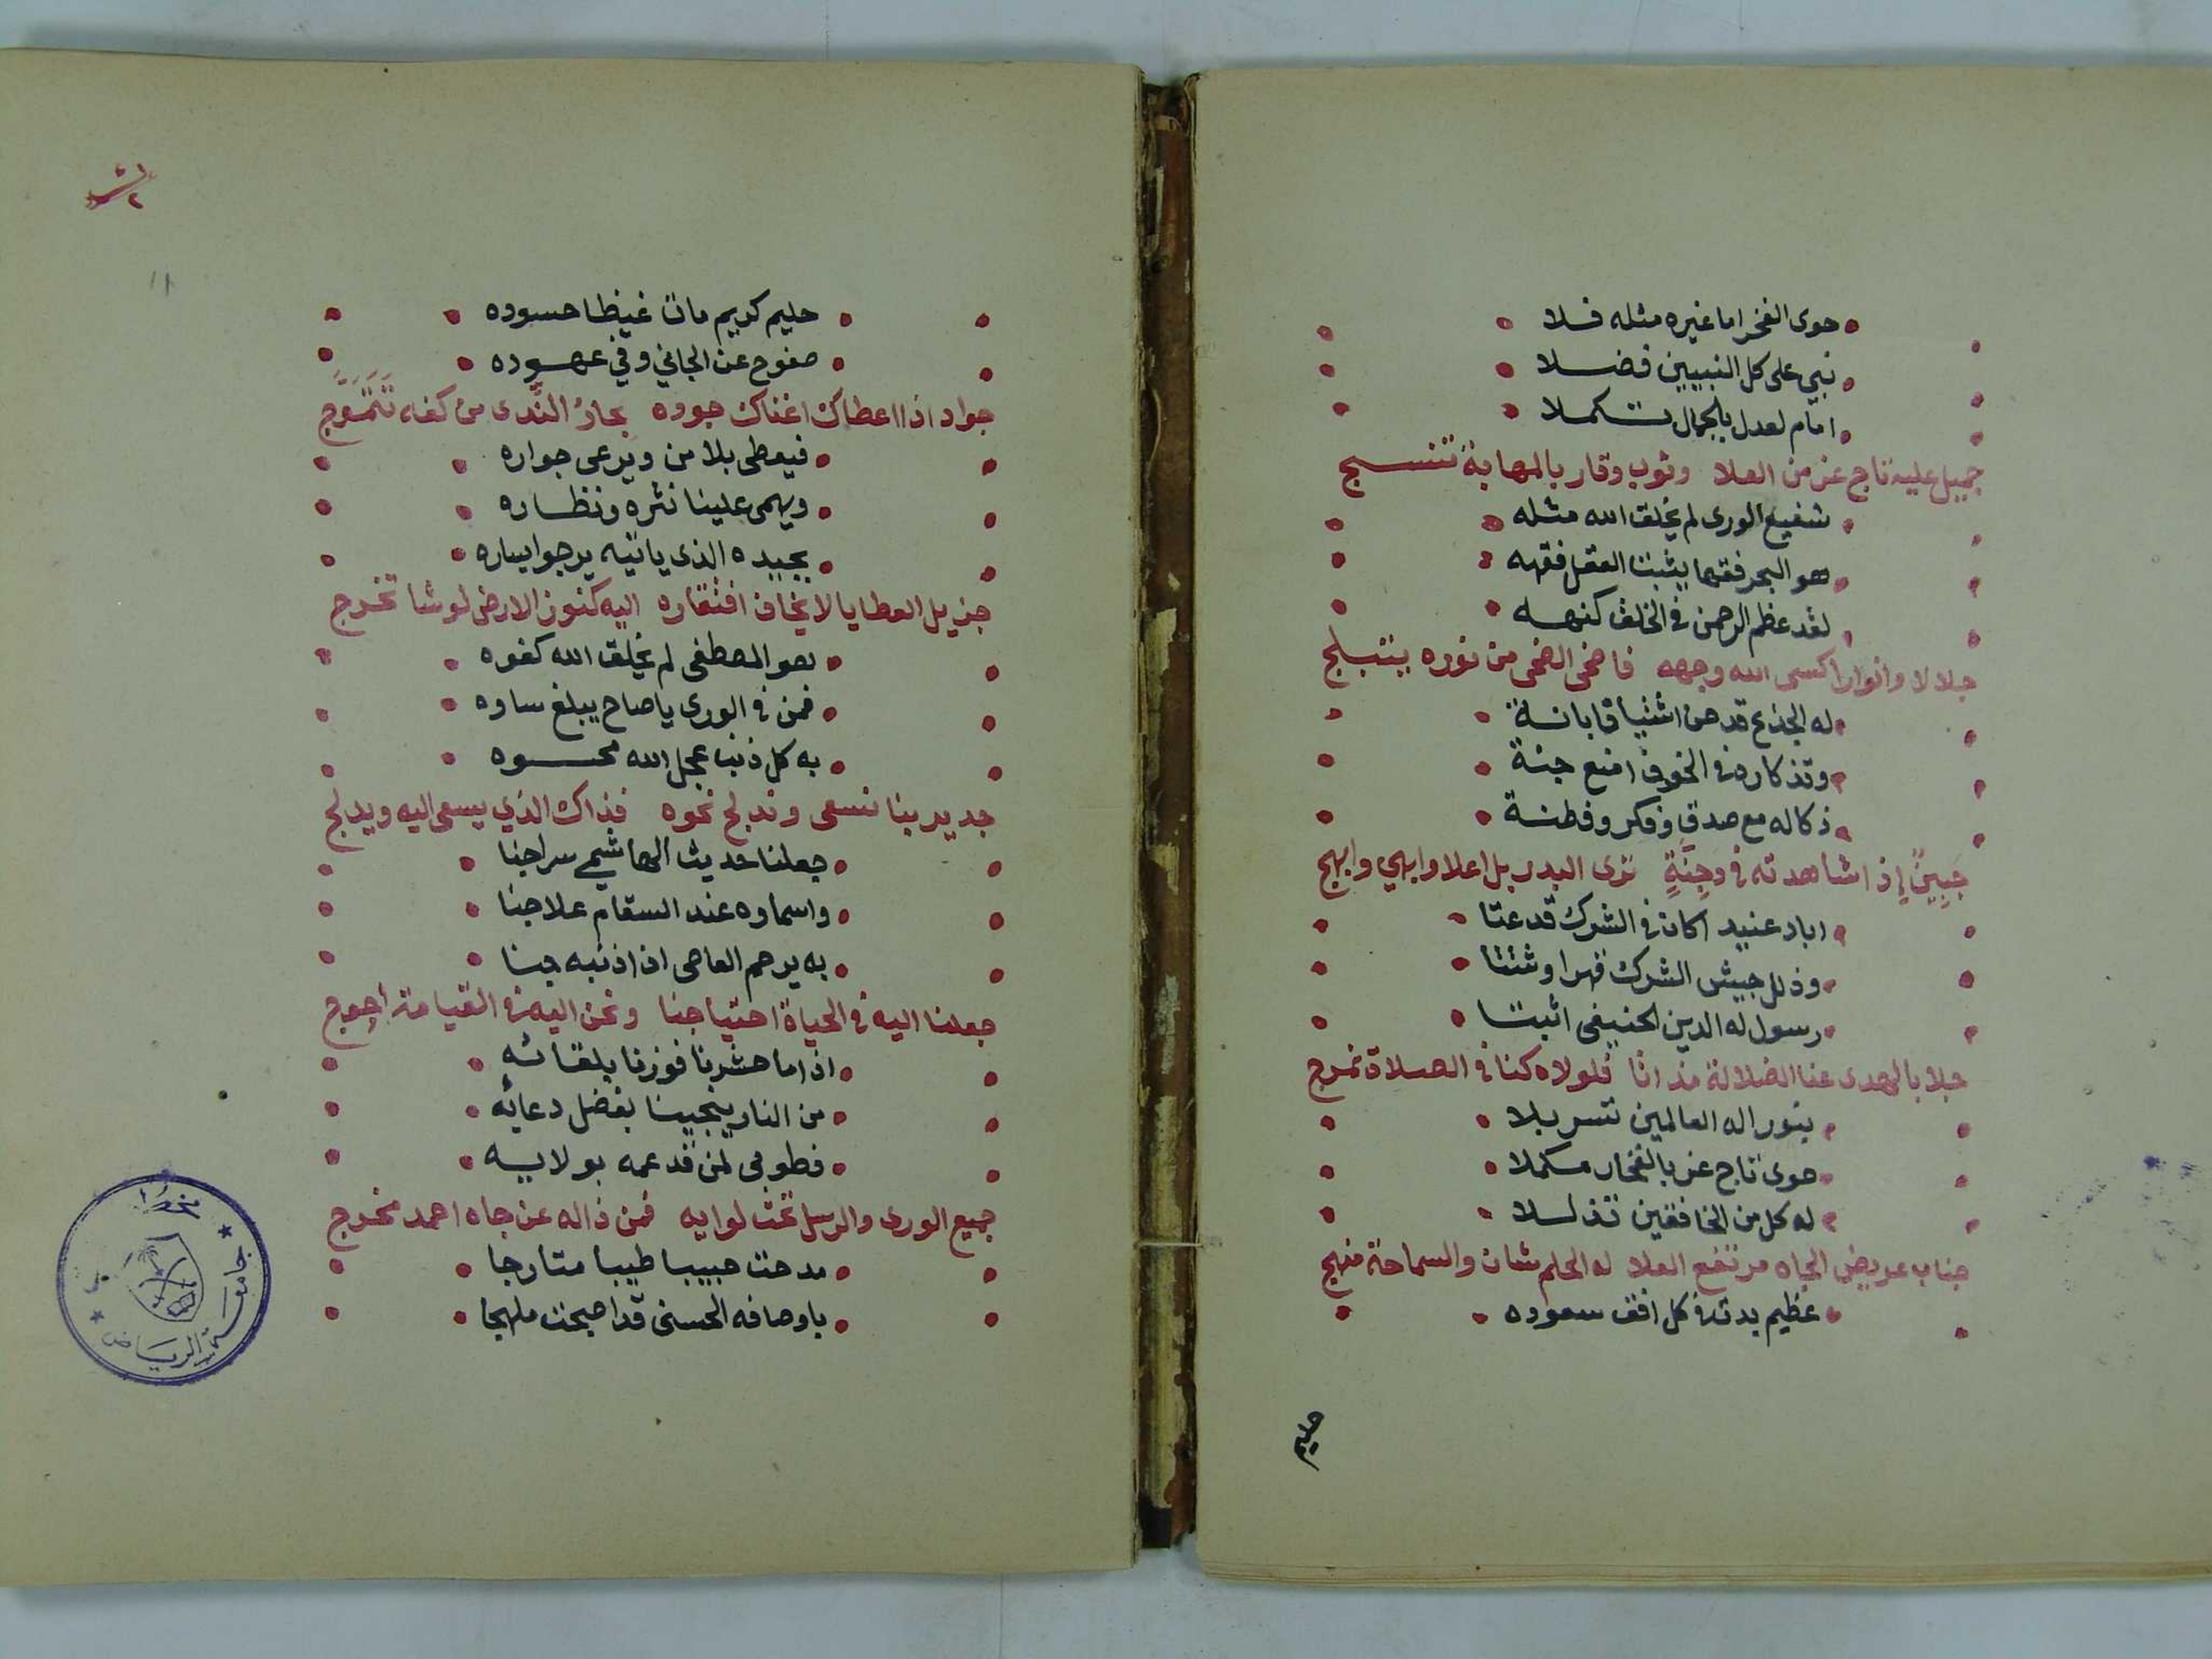 حوى الفخر اما غيره مثله فلا
نبي على كل النبيين فضلا
امام لعدل بالجمال تكملا
جميل عليه تاج عز من العلا وثوب وقار بالمهابة تنسج
شفيع الورى لم يخلق الله مثله
هو البحر فقها يثبت العقل فقهه
لقد عظم الرحمن في الخلق كنهه
جلالا وانوارا كسى الله وجهه فاضحى الضحى من نوره يتبلج
له الجذع قد حن اشتياقا بانة
وتذكاره في الخوف امنع جنة
ذكاله مع صدق وفكر وفطنة
جبين إذا شاهدته في وجنة ترى البدر بل اعلا وابهى وابهج
اباد عنيد اكان في الشرك قد عتا
وذلل جيش الشرك قهرا وشتتا
رسول له الدين الحنيفى اثبتا
جلا بالهدى عنا الضلالة مذ اتا فلولاه كنا في الضلالة نمرج
بنور اله العالمين تسربلا
حوى تاج عز بالفخار مكملا
له كل من الخافقين تذللا
جناب عريض الجاه مرتفع العلا له الحلم شان والسماحة منهج
عظيم بدت في كل افق سعوده
حليم
حليم كريم مات غيظا حسوده
صفوح عن الجاني وفي عهوده
جواد اذا اعطاك اغناك جوده بحار الندى من كفه تتموج
فيعطى بلا من ويرعى جواره
ويهمى علينا نثره ونظاره
بجيده الذى ياتيه يرجو يساره
جزيل العطايا لا يخاف افتقاره اليه كنوز الارض لو شا تخرج
هو المصطفى لم يخلق الله كفوه
فمن في الورى يا صاح يبلغ ساوه
به كل ذنب عجل الله محوه
جدير بنا نسعى وندلج نحوه فذاك الذي يسعى اليه ويدلج
جعلنا حديث الهاشمي سراجنا
واسماوه عند السقام علاجنا
به يرحم العاصى اذا ذنبه جنا
جعلنا اليه في الحياة احتياجنا ونحن اليه في القيامة احوج
اذا ما حشرنا فوزنا بلقائه
من النار ينجينا بفضل دعائه
فطوبى لمن قد عمه بولايه
جميع الورى والرسل تحت لوايه فمن ذا له عن جاه احمد مخرج
مدحت حبيبا طيبا متارجا
باوصافه الحسنى قد اصبحت ملهجا
جامعة الرياض